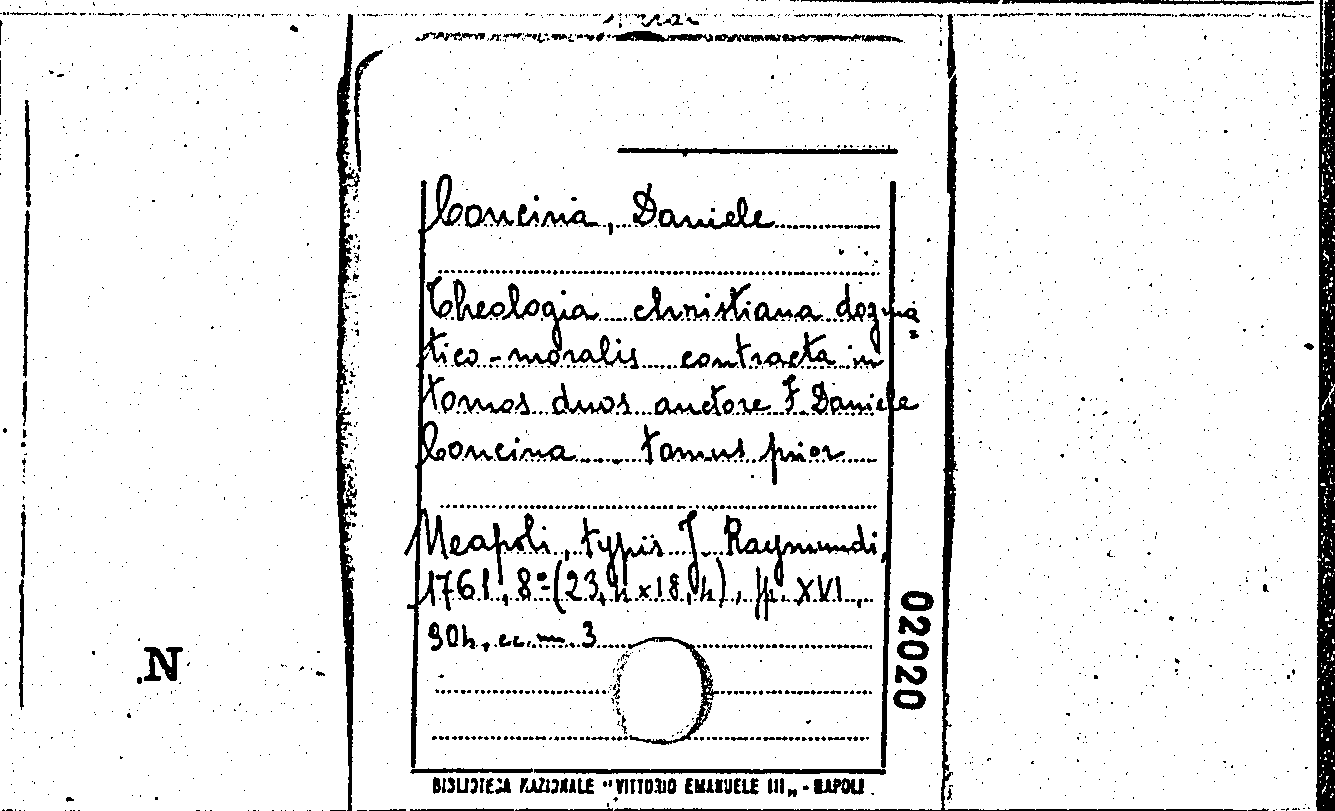 Concina, Daniele
Theologia christiana dogma=
tico-moralis contracta in
tomos duos auctore F. Daniele
Concina tomus prior
Neapoli, typis J. Raymundi,
1761, 8º (23,4 x 18,4), pp. XVI,
904, cc. nn. 3
02020
N
BIBLIOTECA NAZIONALE "VITTORIO EMANUELE III„ - NAPOLI